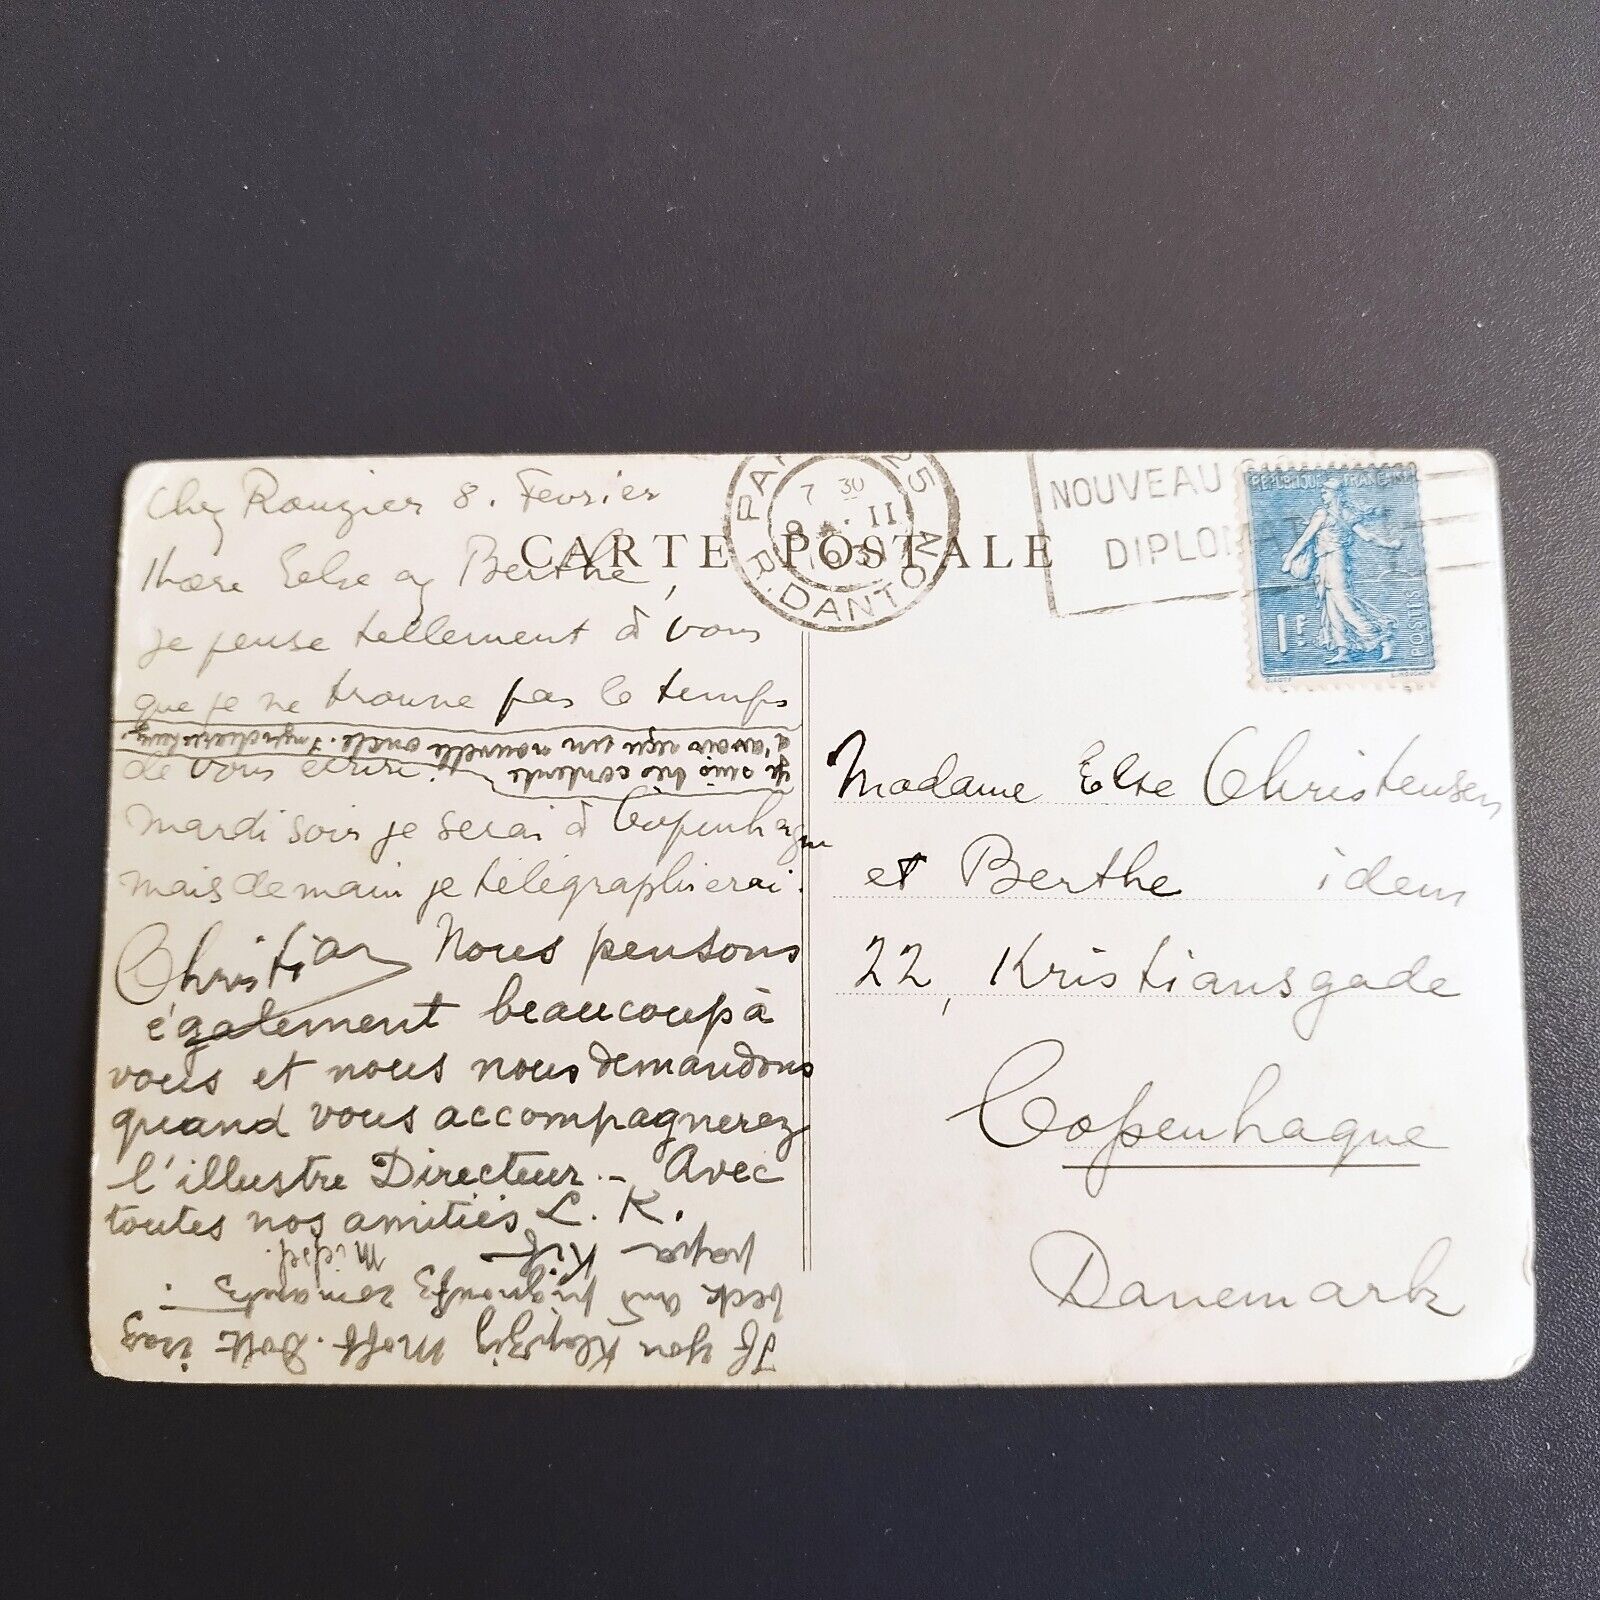 Chez Rouzier 8. Fevrier
CARTE POSTALE
Kære Else og Berthe,
je pense tellement à vous
que je ne trouve pas le temps
de vous écrire.
je suis très contente
d'avoir reçu un nouvelle oncle.
Mardi soir je serai à Copenhague
mais demain je télégraphierai.
Christian Nous pensons
également beaucoup à
vous et nous nous demandons
quand vous accompagnerez
l'illustre Directeur. - Avec
toutes nos amitiés L. K.
papa
PARIS 25
7 30
8 II
R. DANTON
NOUVEAU
DIPLOM
REPUBLIQUE FRANÇAISE
POSTES
1F
Madame Else Christensen
et Berthe idem
22, Kristiansgade
Copenhague
Danemark